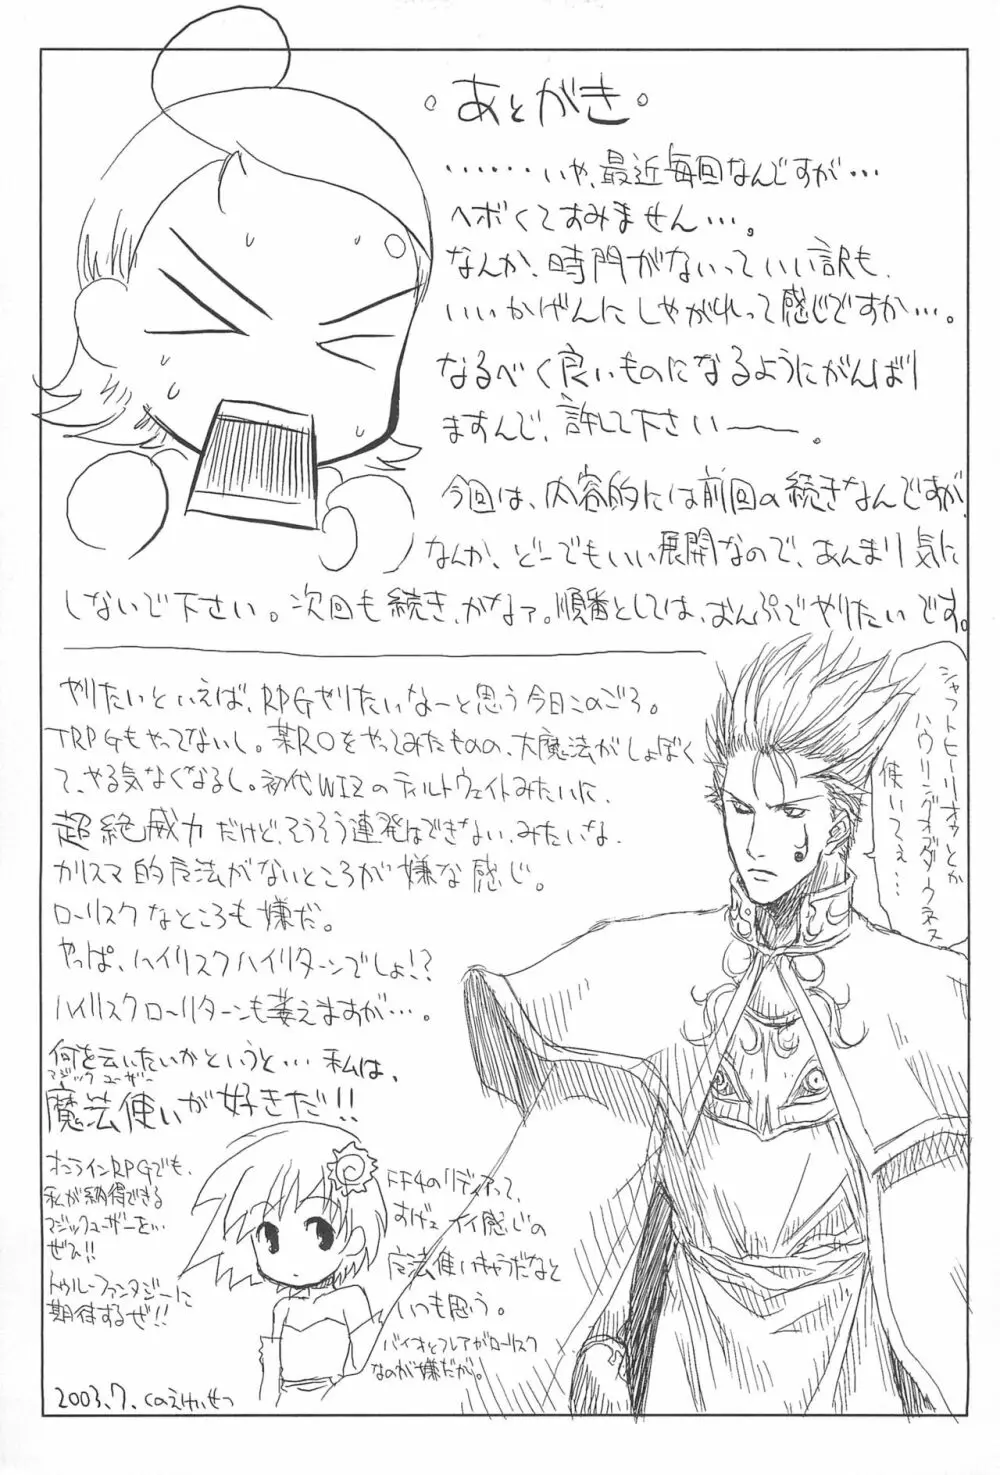 ・あとがき・
・・・・・・いや、最近毎回なんですが・・・
ヘボくてすみません・・・。
なんか、時間がないっていい訳も、
いいかげんにしやがれって感じですか・・・。
なるべく良いものになるようにがんばり
ますんで、許して下さい――。
今回は、内容的には前回の続きなんですが、
なんか、どーでもいい展開なので、あんまり気に
しないで下さい。次回も続き、かなァ。順番としては、おんぷでやりたいです。
やりたいといえば、RPGやりたいなーと思う今日このごろ。
TRPGもやってないし。某ROをやってみたものの、大魔法がしょぼく
て、やる気なくなるし。初代WIZのティルトウェイトみたいに、
超絶威力だけど、そうそう連発はできない、みたいな
カリスマ的魔法がないところが嫌な感じ。
ローリスクなところも嫌だ。
やっぱ、ハイリスクハイリターンでしょ!?
ハイリスクローリターンも萎えますが・・・。
何を云いたいかというと・・・私は、
マジックユーザー
魔法使いが好きだ!!
オンラインRPGでも、
私が納得できる
マジックユーザーを・・
ぜひ!!
トゥルーファンタジーに
期待するぜ!!
FF4のリディアって、
すげェイイ感じの
魔法使いキャラだなと
いつも思う。
バイオとフレアがローリスク
なのが嫌だが。
シャフトヒーリオゥとか
ハウリングオダークネス
使いてぇ・・・
2003.7. このえけいせつ